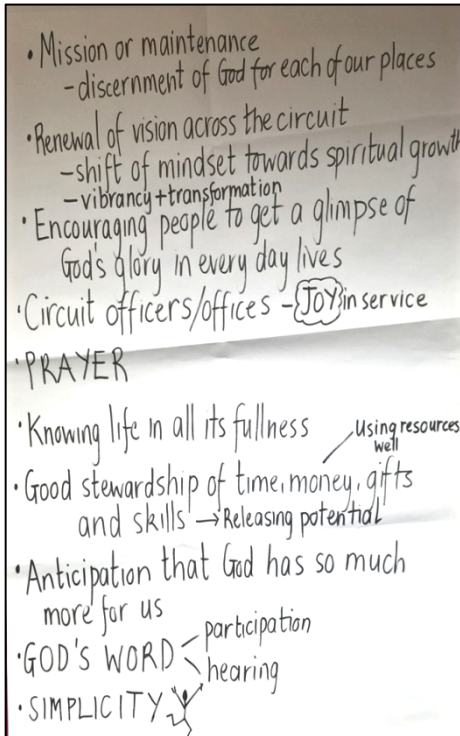 • Mission or maintenance
- discernment of God for each of our places
• Renewal of vision across the circuit
- shift of mindset towards spiritual growth
- vibrancy + transformation
• Encouraging people to get a glimpse of
God's glory in every day lives
• Circuit officers/offices - JOY in service
• PRAYER
• Knowing life in all its fullness
Using resources
well
• Good stewardship of time, money, gifts
and skills → Releasing potential
• Anticipation that God has so much
more for us
participation
• GOD'S WORD
hearing
• SIMPLICITY